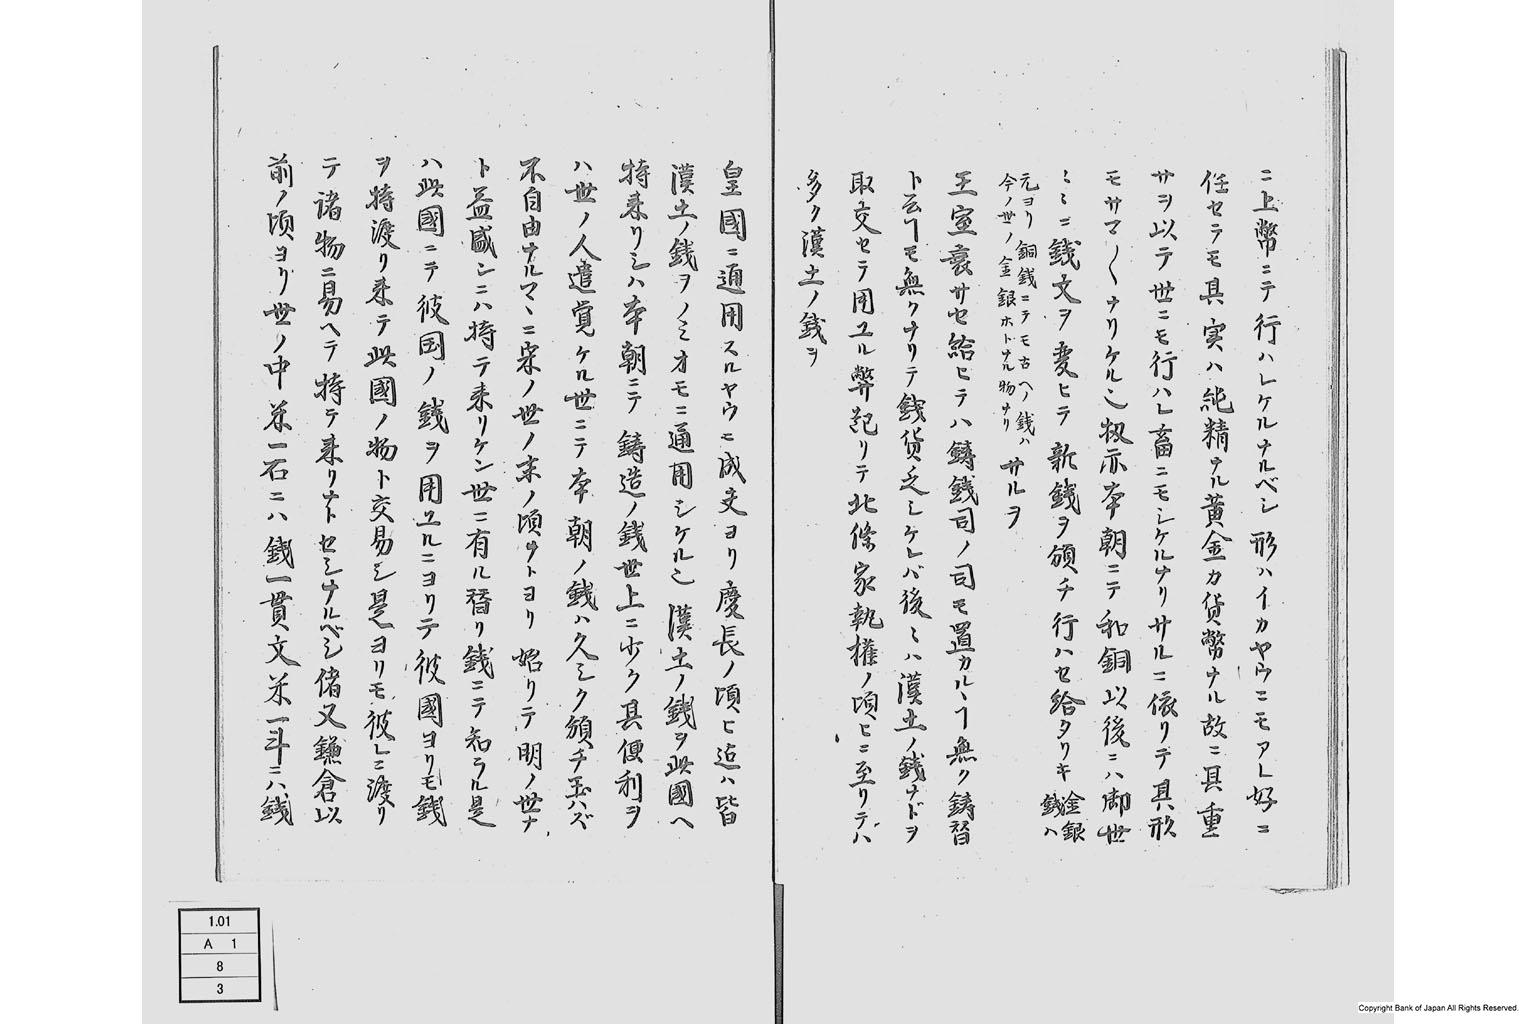 ニ上幣ニテ行ハレケルナルベシ形ハイカヤウニモアレ好ニ
任セラモ具実ハ純精ナル黄金カ貨幣ナル故ニ具重
サヲ以テ世ニモ行ハレ畜ニモシケルナリサルニ依リテ具形
モサマ〱ナリケル也扨亦本朝ニテ和銅以後ニハ御世
ミミニ銭文ヲ変ヒテ新銭ヲ頒チ行ハセ給タリキ金銀
銭ハ
元ヨリ銅銭ニテモ古ヘノ銭ハ
今ノ世ノ金銀ホトナル物ナリ サルヲ
王室衰サセ給ヒテハ鋳銭司ノ司モ置カルヽヿ無ク鋳替
ト云ヿモ無クナリテ銭貨乏シケレバ後ミハ漢土ノ銭ナドヲ
取交セテ用ユル弊起リテ北條家執権ノ頃ヒニ至リテハ
多ク漢土ノ銭ヲ
皇國ニ通用スルヤウニ成夫ヨリ慶長ノ頃ヒ迄ハ皆
漢土ノ銭ヲノミオモニ通用シケル也漢土ノ銭ヲ此國ヘ
持来リシハ本朝ニテ鋳造ノ銭世上ニ少ク具便利ヲ
ハ世ノ人遣覚ケル世ニテ本朝ノ銭ハ久シク頒チ玉ハズ
不自由ナルマヽニ宋ノ世ノ末ノ頃ナトヨリ始リテ明ノ世ナ
ト益盛ンニハ持テ来リケン世ニ有ル替リ銭ニテ知ラル是
ハ此國ニテ彼国ノ銭ヲ用ユルニヨリテ彼國ヨリモ銭
ヲ持渡リ来テ此國ノ物ト交易シ是ヨリモ彼レニ渡リ
テ諸物ニ易ヘテ持テ来リナトセシナルベシ偖又鎌倉以
前ノ頃ヨリ世ノ中米一石ニハ銭一貫文米一斗ニハ銭
1.01
A 1
8
3
Copyright Bank of Japan All Rights Reserved.